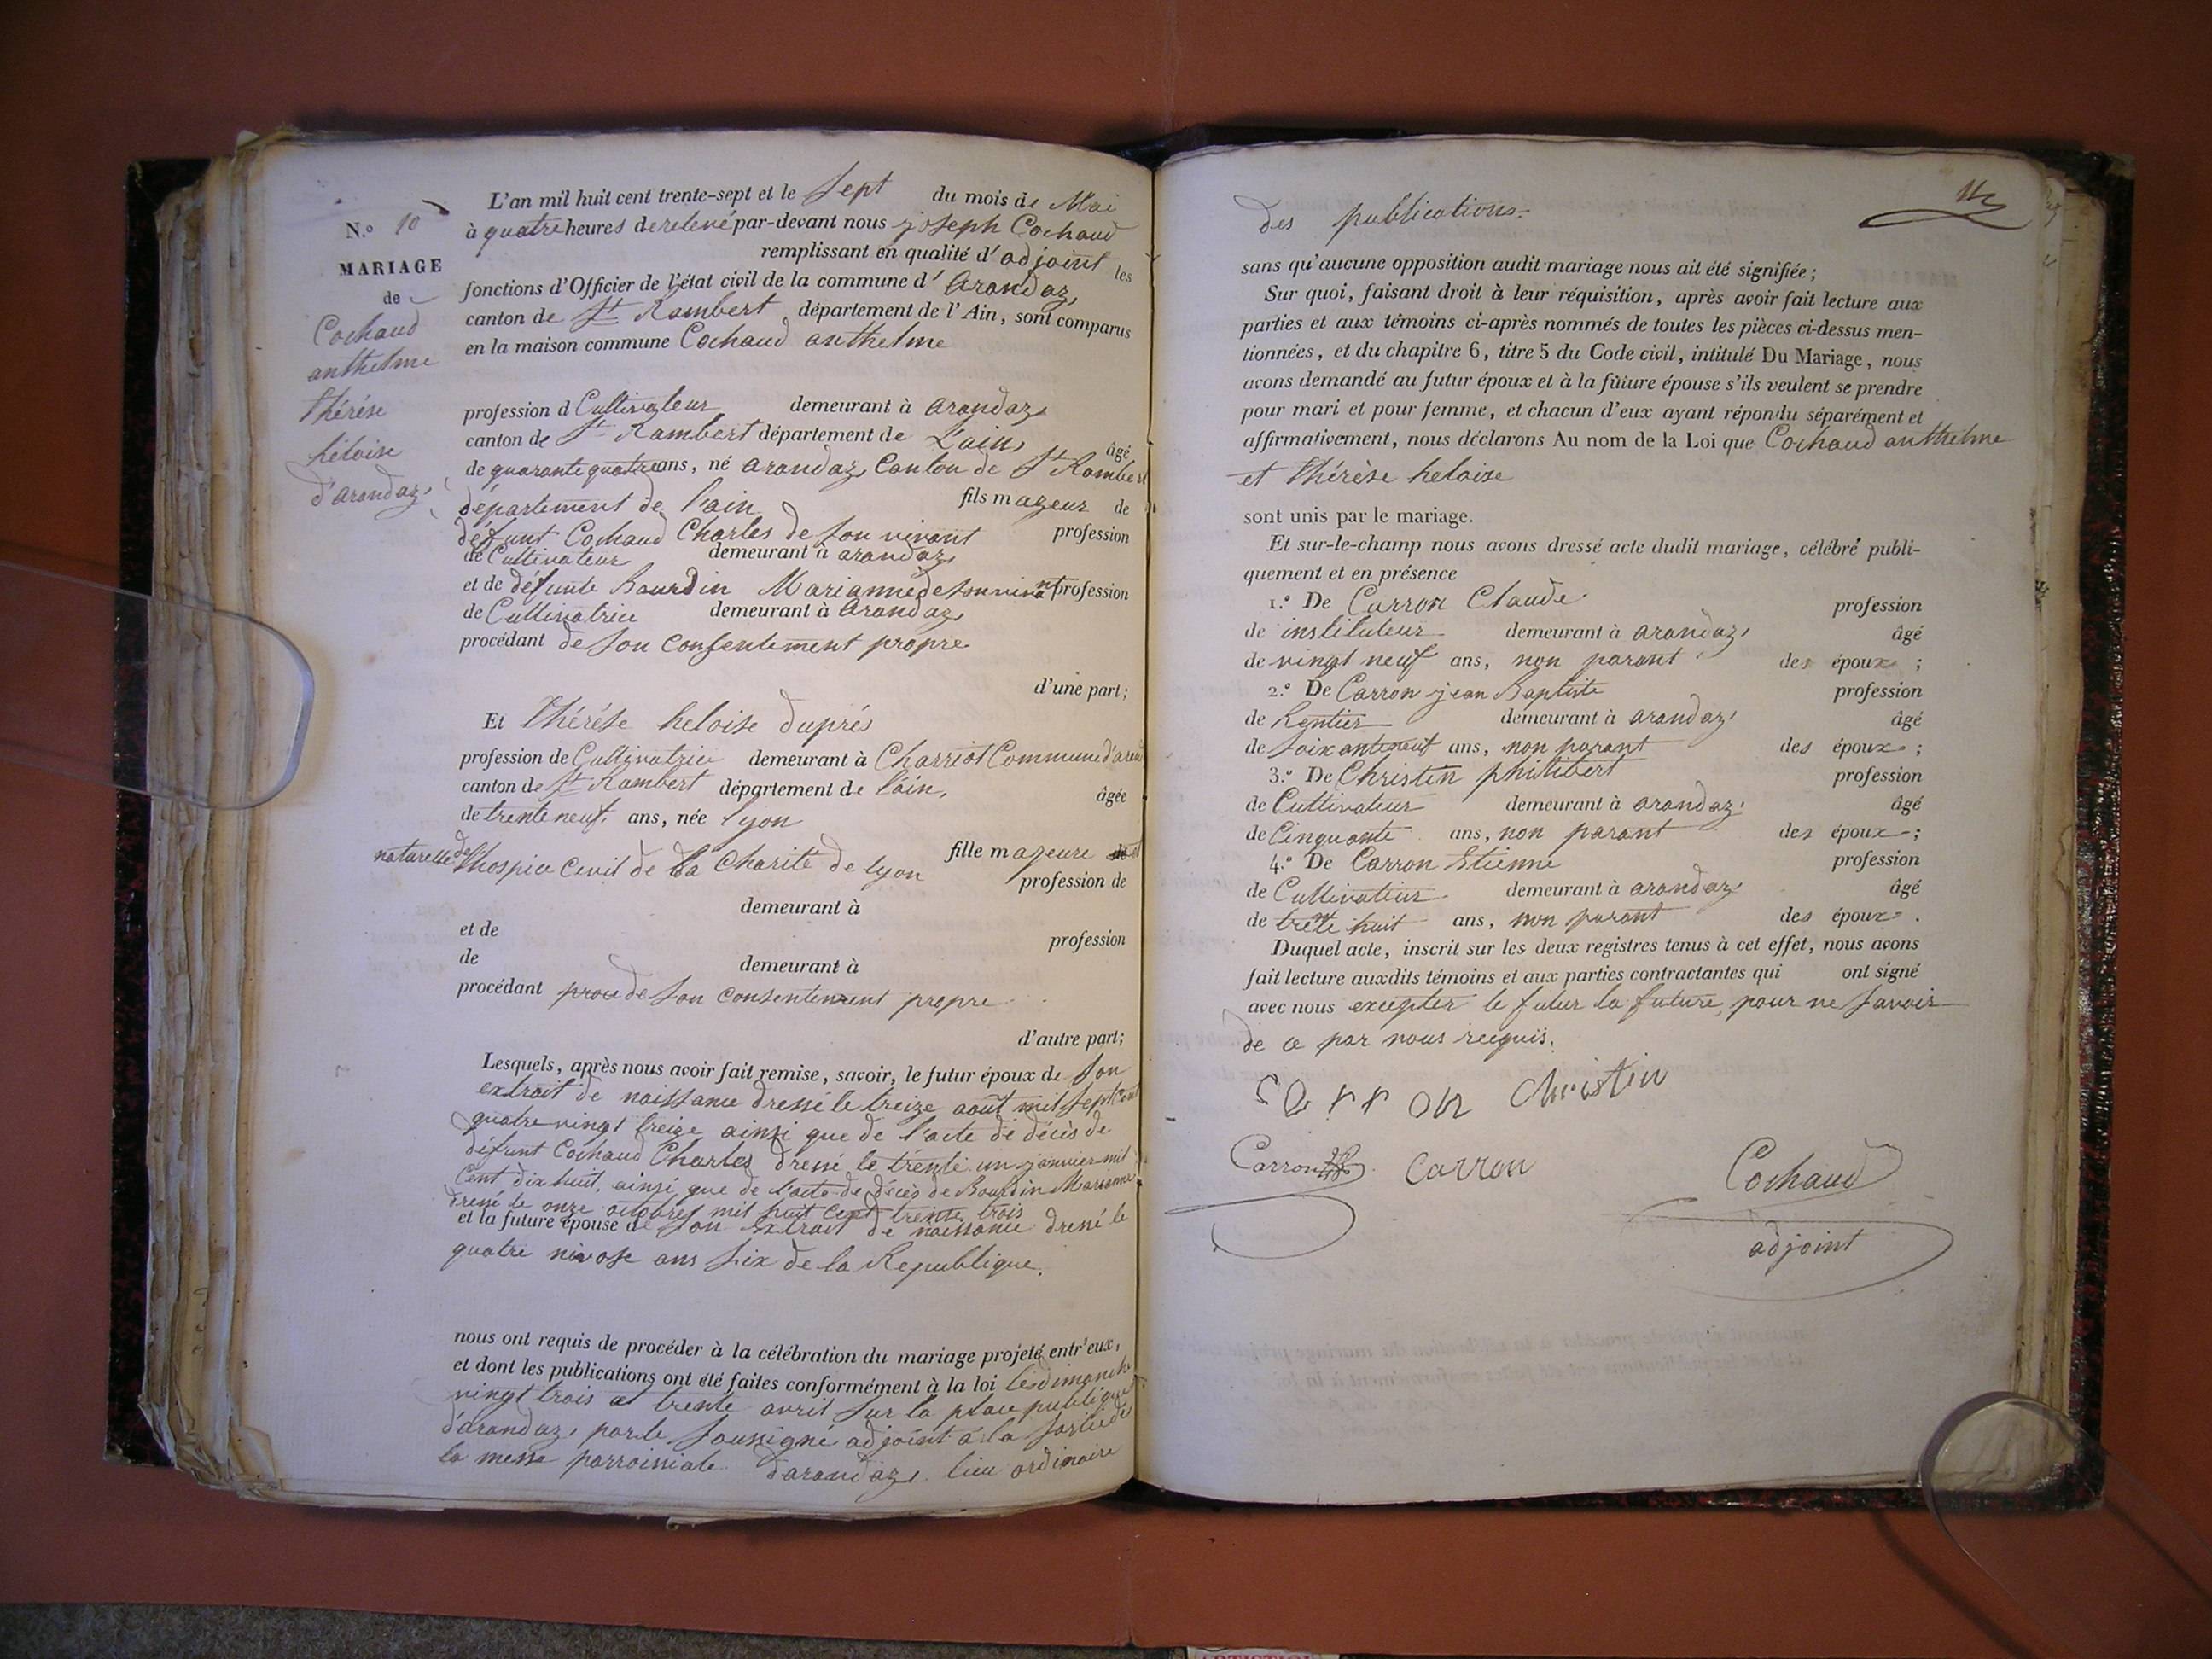 N.º 10
MARIAGE
de
Cochaud
anthelme
thérése
héloise
d'arandaz,
L'an mil huit cent trente-sept et le sept du mois de Mai
à quatre heures de relevé par-devant nous joseph Cochaud
remplissant en qualité d'adjoint les
fonctions d'Officier de l'état civil de la commune d'arandaz,
canton de St Rambert département de l'Ain, sont comparus
en la maison commune Cochaud anthelme
profession d Cultivateur demeurant à arandaz,
canton de St Rambert département de L'ain, âgé
de quarante quatre ans, né arandaz, Canton de St Rambert
département de l'ain fils majeur de
défunt Cochaud Charles de son vivant profession
de Cultivateur demeurant à arandaz,
et de défunte Bourdin Marianne de son vivant profession
de Cultivatrice demeurant à arandaz,
procédant de son consentement propre
d'une part;
Et thérése heloise duprés
profession de Cultivatrice demeurant à Charriot Commune
canton de St Rambert département de l'ain, âgée
de trente neuf ans, née lyon
fille majeure
naturelle de l'hospice Civil de la Charité de lyon profession de
demeurant à
et de profession
de demeurant à
procédant de son consentement propre
d'autre part;
Lesquels, après nous avoir fait remise, savoir, le futur époux de son
extrait de naissance dressé le treize août mil sept Cent
quatre vingt treize ainsi que de l'acte de décès de
défunt Cochaud Charles dressé le trente un janvier mil
Cent dix huit, ainsi que de l'acte de décès de Bourdin Marianne
dressé le onze octobre mil huit Cent trente trois
et la future épouse de son extrait de naissance dressé le
quatre nivose ans six de la Republique.
nous ont requis de procéder à la célébration du mariage projeté entr'eux,
et dont les publications ont été faites conformément à la loi les dimanche
vingt trois et trente avril sur la place publique
d'arandaz, par le soussigné adjoint à la sortie de
la messe parroissiale d'arandaz, lieu ordinaire
des publications.
sans qu'aucune opposition audit mariage nous ait été signifiée;
Sur quoi, faisant droit à leur réquisition, après avoir fait lecture aux
parties et aux témoins ci-après nommés de toutes les pièces ci-dessus men-
tionnées, et du chapitre 6, titre 5 du Code civil, intitulé Du Mariage, nous
avons demandé au futur époux et à la future épouse s'ils veulent se prendre
pour mari et pour femme, et chacun d'eux ayant répondu séparément et
affirmativement, nous déclarons Au nom de la Loi que Cochaud anthelme
et thérèse heloise
sont unis par le mariage.
Et sur-le-champ nous avons dressé acte dudit mariage, célébré publi-
quement et en présence
1.º De Carron Claude profession
de instituteur demeurant à arandaz, âgé
de vingt neuf ans, non parant des époux;
2.º De Carron jean Baptiste profession
de Rentier demeurant à arandaz, âgé
de ans, non parant des époux;
3.º De Christin philibert profession
de Cultivateur demeurant à arandaz, âgé
de Cinquante ans, non parant des époux;
4.º De Carron Etienne profession
de Cultivateur demeurant à arandaz âgé
de trente huit ans, non parant des époux.
Duquel acte, inscrit sur les deux registres tenus à cet effet, nous avons
fait lecture auxdits témoins et aux parties contractantes qui ont signé
avec nous excepter le futur la future, pour ne savoir
de ce par nous requis.
carron Christin
Carron carron Cochaud
adjoint